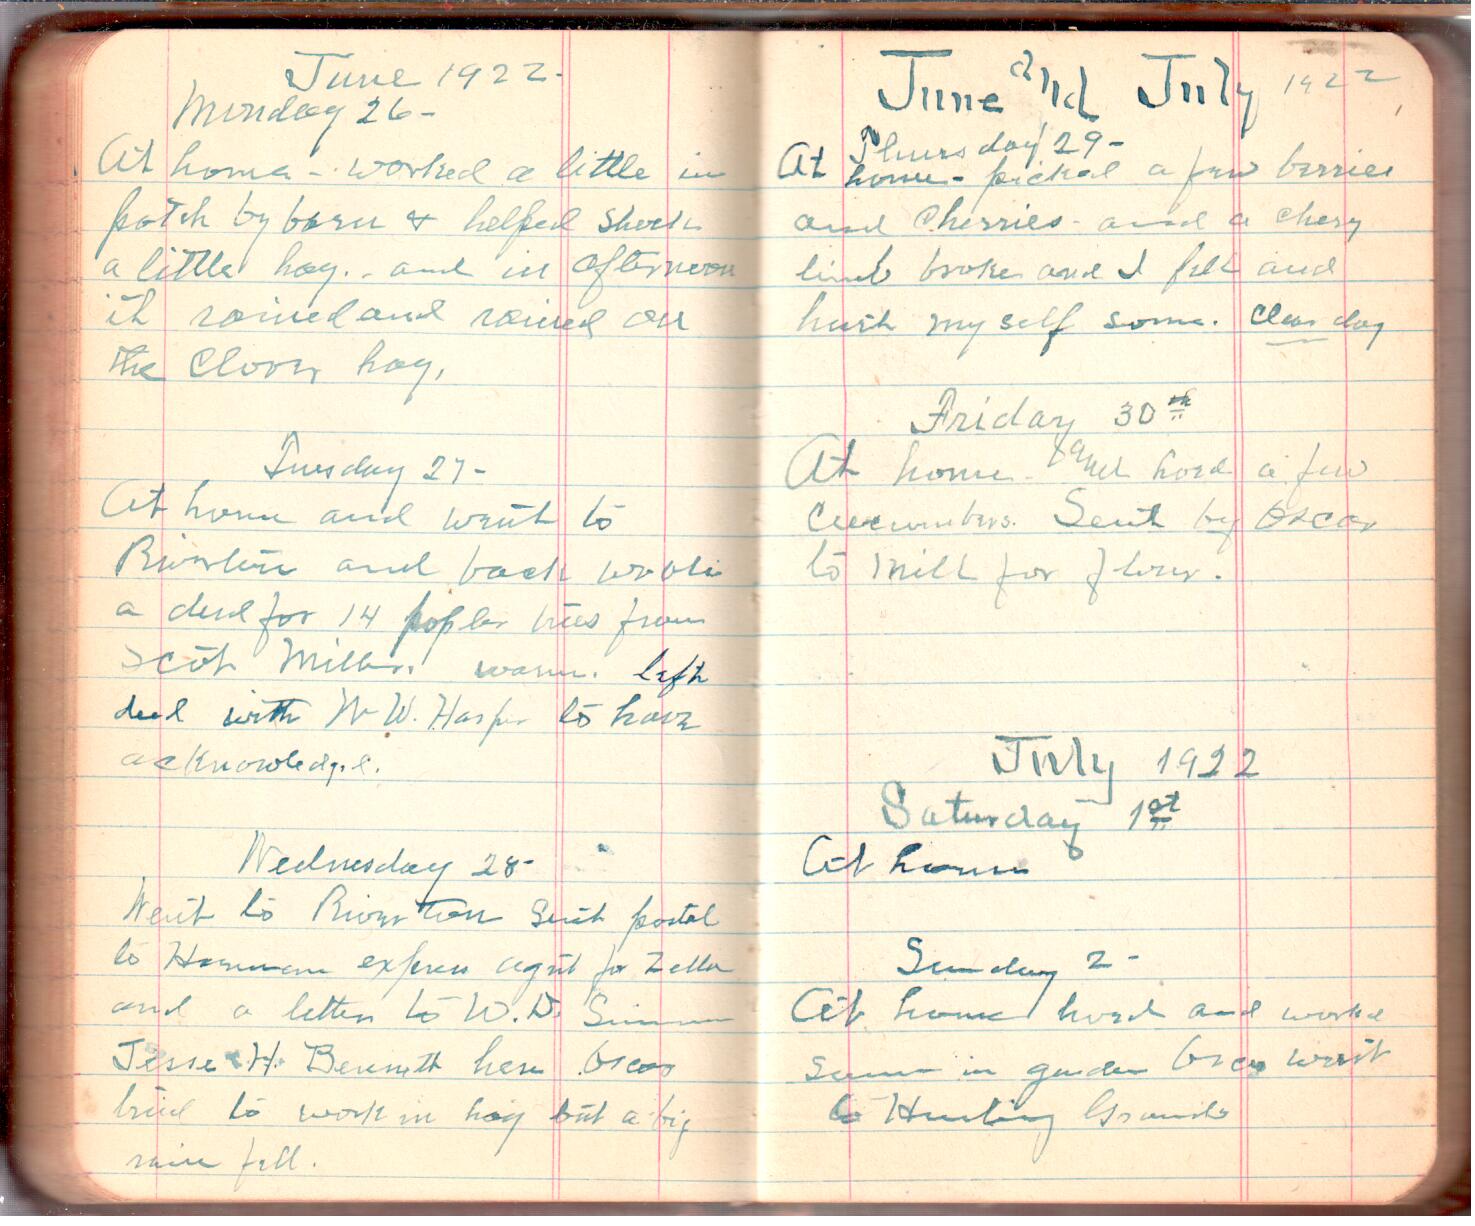 June 1922-
Monday 26-
At home - worked a little in
patch by barn & helped shock
a little hay. and in afternoon
it rained and rained on
the Clover hay,
Tuesday 27-
At home and went to
Riverton and back wrote
a deed for 14 poplar trees from
Scot Miller. warm. left
deed with W W. Harper to have
acknowledged.
Wednesday 28-
Went to Riverton sent postal
to Harman express agent for Zella
and a letter to W. D.
Jesse H. Bennett here Oscar
tried to work in hay but a big
rain fell.
June and July 1922
Thursday 29-
At home - picked a few berries
and Cherries - and a Chery
limb broke and I fell and
hurt my self some. Clear day
Friday 30th
At home - and hoed a few
Cucumbers. Sent by Oscar
to Mill for flour.
July 1922
Saturday 1st
At home
Sunday 2-
At home hoed and worked
some in garden Oscar went
to Hunting Grounds